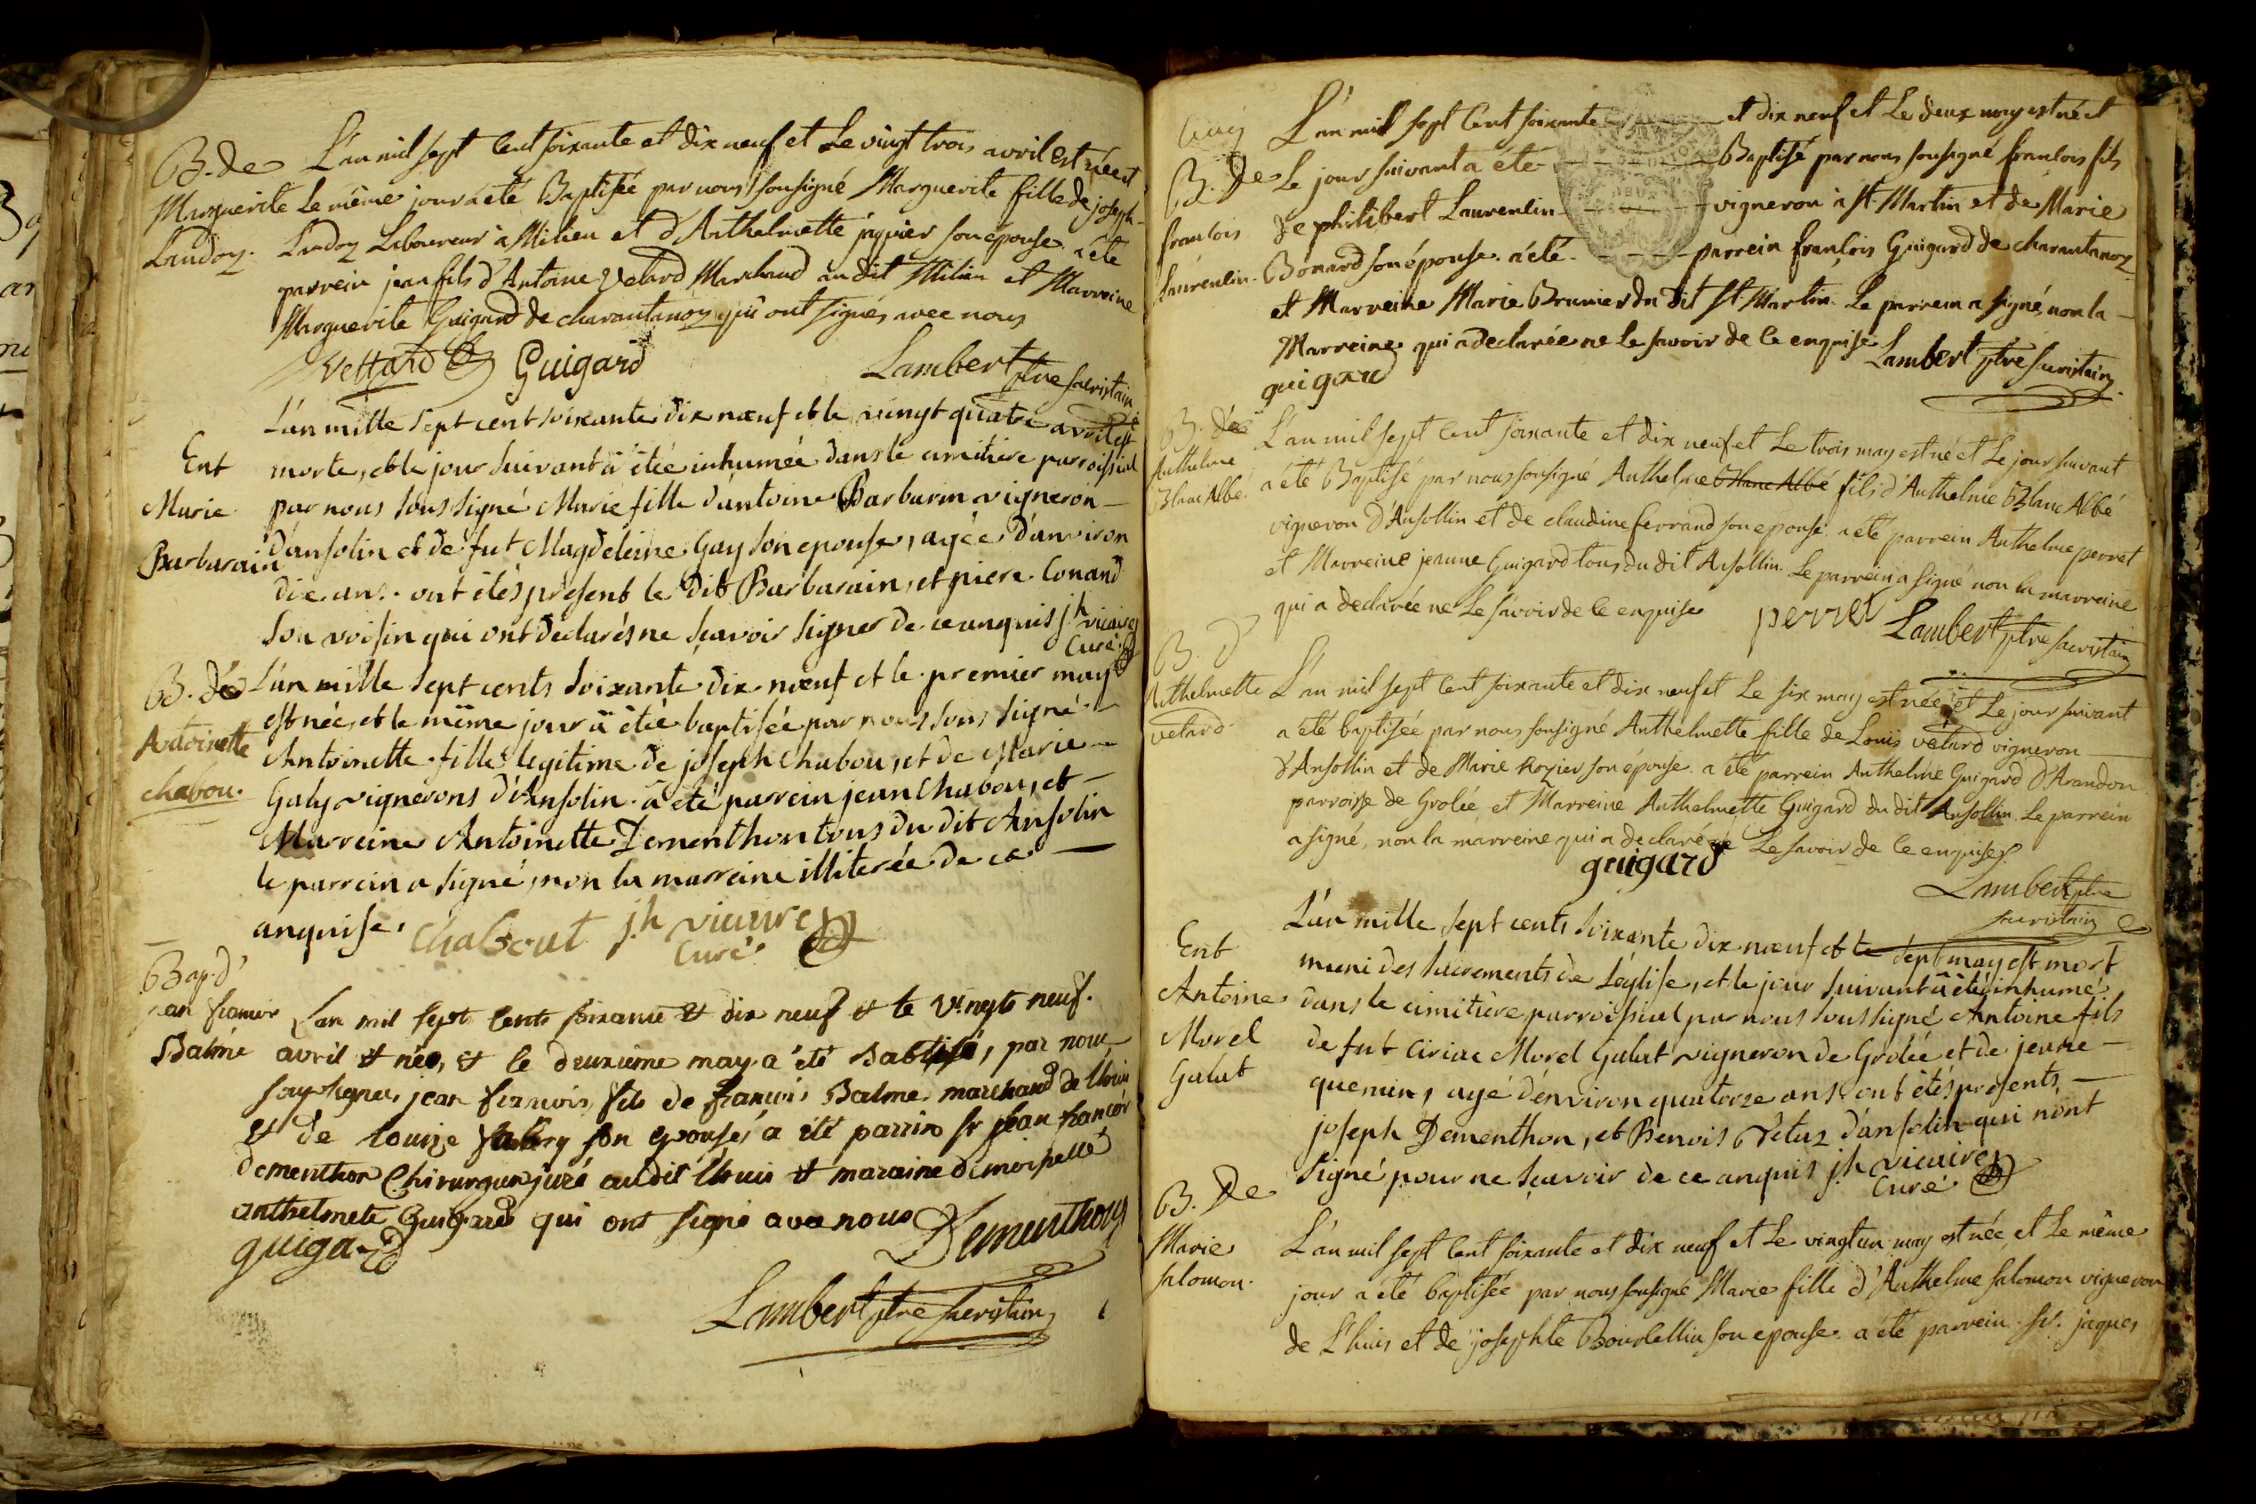 B. de
Marguerite
Landoz.
L'an mil sept cent soixante et dix neuf et Le vingt trois avril est née et
Le même jour a été Baptisée par nous soussigné Marguerite fille de joseph
Landoz Laboureur à Milieu et d'Anthelmette jaquier son épouse. a été
parrein jean fils d'Antoine Vetard Marchand au dit Milieu et Marreine
Marguerite Guigard de charantanoz qui ont signés avec nous
Vettard Guigard Lambert ptre sacristain
Ent
Marie
Barbarain
L'an mille sept cent soixante dix nœuf et le vingt quatre avril est
morte, et le jour suivant à étée inhumée dans le cimitière parroissial
par nous sous signé Marie fille d'antoine Barbarin vigneron
d'ansolin et de fut Magdeleine Gay son epouse, agée d'anviron
dix ans. ont étés présent le dit Barbarain, et piere Conand
son voisin qui ont déclarés ne sçavoir signer de ce anquis jh vicaire
Curé
B. de
Antoinette
chabou.
L'an mille sept cents soixante dix nœuf et le premier may
est née, et le même jour à étée baptisée par nous sous signé
Antoinette fille legitime de joseph Chabou, et de Marie
Galy vignerons d'Ansolin. à été parrein jean Chabou, et
Marreine Antoinette Dementhon tous du dit Ansolin
le parrein a signé, non la marreine illiterée de ce
anquise. Chabout jh vicaire
Curé
Bap. d'
jean francois
Balme
Lan mil sept cents soixante & dix neuf & le vingt neuf.
avril & née, & le deuxieme may a été Babtisé, par nous
soussignés jean francois fils de francois Balme marchand de lhuis
& de louize son epouse, a été parrin sr jean francois
dementhon Chirurgien juré audit lhuis & maraine demoiselle
anthelmete Guigard qui ont signé avec nous Dementhon
guigard
Lambert ptre sacristain
B. de
francois
Laurentin.
L'an mil sept cent soixante et dix neuf et Le deux may est né et
Le jour suivant a été Baptisé par nous soussigné francois fils
de philibert Laurentin vigneron à St. Martin et de Marie
Bonard son épouse. a été parrein francois Guigard de charantanoz
et Marreine Marie Brunier du dit St. Martin. Le parrein a signé, non la
Marreine qui a declarée ne Le savoir de ce enquise Lambert ptre sacristain
guigard
B. de
Anthelme
Blanc Albé.
L'an mil sept cent soixante et dix neuf et Le trois may est né et Le jour suivant
a été Baptisé par nous soussigné Anthelme Blanc Albé fils d'Anthelme Blanc Albé
vigneron d'Ansollin et de claudine ferrand son epouse a été parrein Anthelme perret
et Marreine jeanne Guigard tous du dit Ansollin. Le parrein a signé non la marreine
qui a declarée ne Le savoir de ce enquise perret Lambert ptre sacristain
B. d'
Anthelmette
vetard
L'an mil sept cent soixante et dix neuf et Le six may est née et Le jour suivant
a été baptisée par nous soussigné Anthelmette fille de Louis vetard vigneron
d'Ansollin et de Marie Rozier son épouse. a été parrein Anthelme Guigard d'Arandon
parroisse de Grolée et Marreine Anthelmette Guigard du dit Ansollin. Le parrein
a signé, non la marreine qui a declaré ne Le savoir de ce enquise
guigard
Lambert ptre
sacristain
Ent
Antoine
Morel
Galat
L'an mille sept cents soixante dix nœuf et le sept may est mort
muni des sacrements de l'église, et le jour suivant à été inhumé
dans le cimitière parroissial par nous sous signé Antoine fils
de fut Ciriac Morel Galat vigneron de Grolée et de jeane
quemin, agé d'environ quatorze ans. ont étés présents
joseph Dementhon, et Benois Vetaz d'ansolin qui n'ont
signé pour ne sçavoir de ce anquis jh vicaire
Curé
B. de
Marie
Salomon.
L'an mil sept cent soixante et dix neuf et Le vingt un may est née et Le même
jour a été baptisée par nous soussigné Marie fille d'Anthelme Salomon vigneron
de L'huis et de josephte Bourdellin son epouse. a été parrein. Sr. jaques